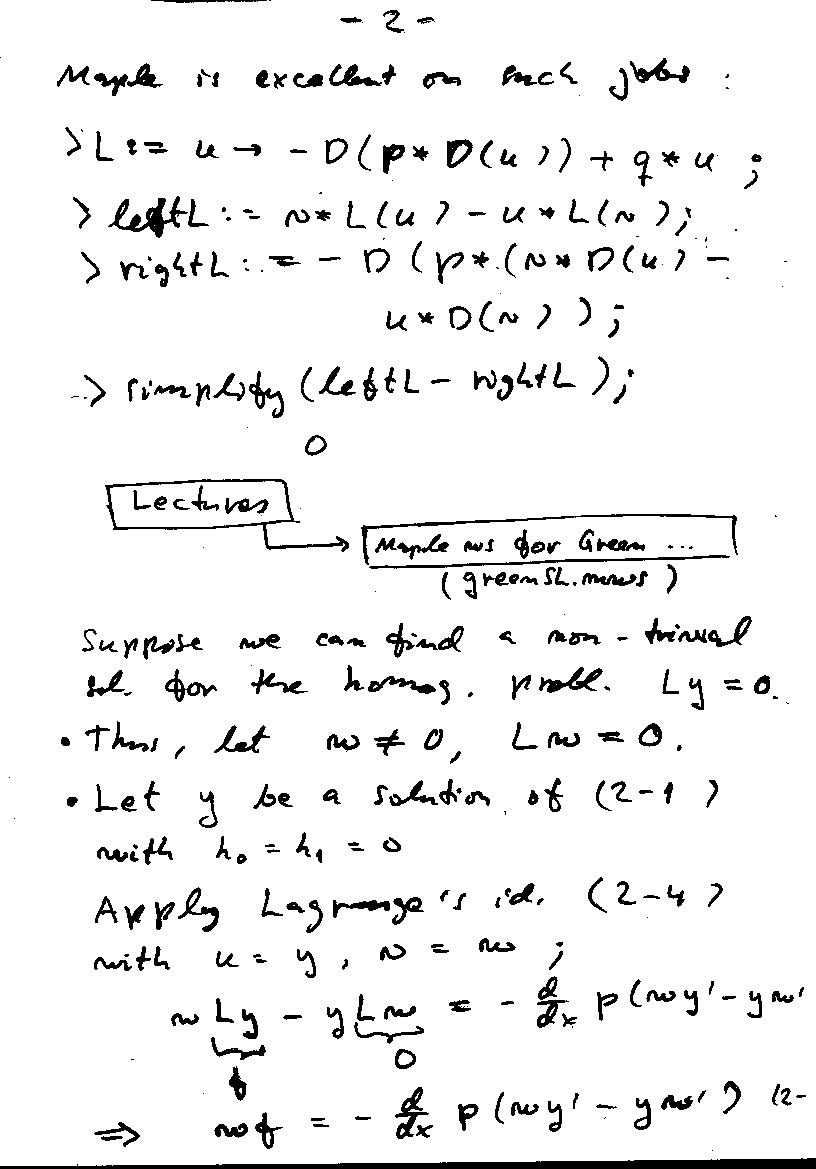 - 2 -
Maple is excellent on such jobs :
> L := u → - D(p* D(u)) + q*u ;
> leftL := v* L(u) - u * L(v);
> rightL := - D (p*(v* D(u) -
u * D(v) ) ;
> simplify (leftL - rightL );
0
Lectures
Maple ws for Green ...
(greenSL.mws)
Suppose we can find a non-trivial
sol. for the homog. probl. Ly = 0.
• Thus, let w ≠ 0, Lw = 0.
• Let y be a solution of (2-1)
with h₀ = h₁ = 0
Apply Lagrange's id. (2-4)
with u = y, v = w ;
w Ly - y Lw = - d/dx p (wy' - yw'
f 0
⇒ wf = - d/dx p (wy' - yw') (2-